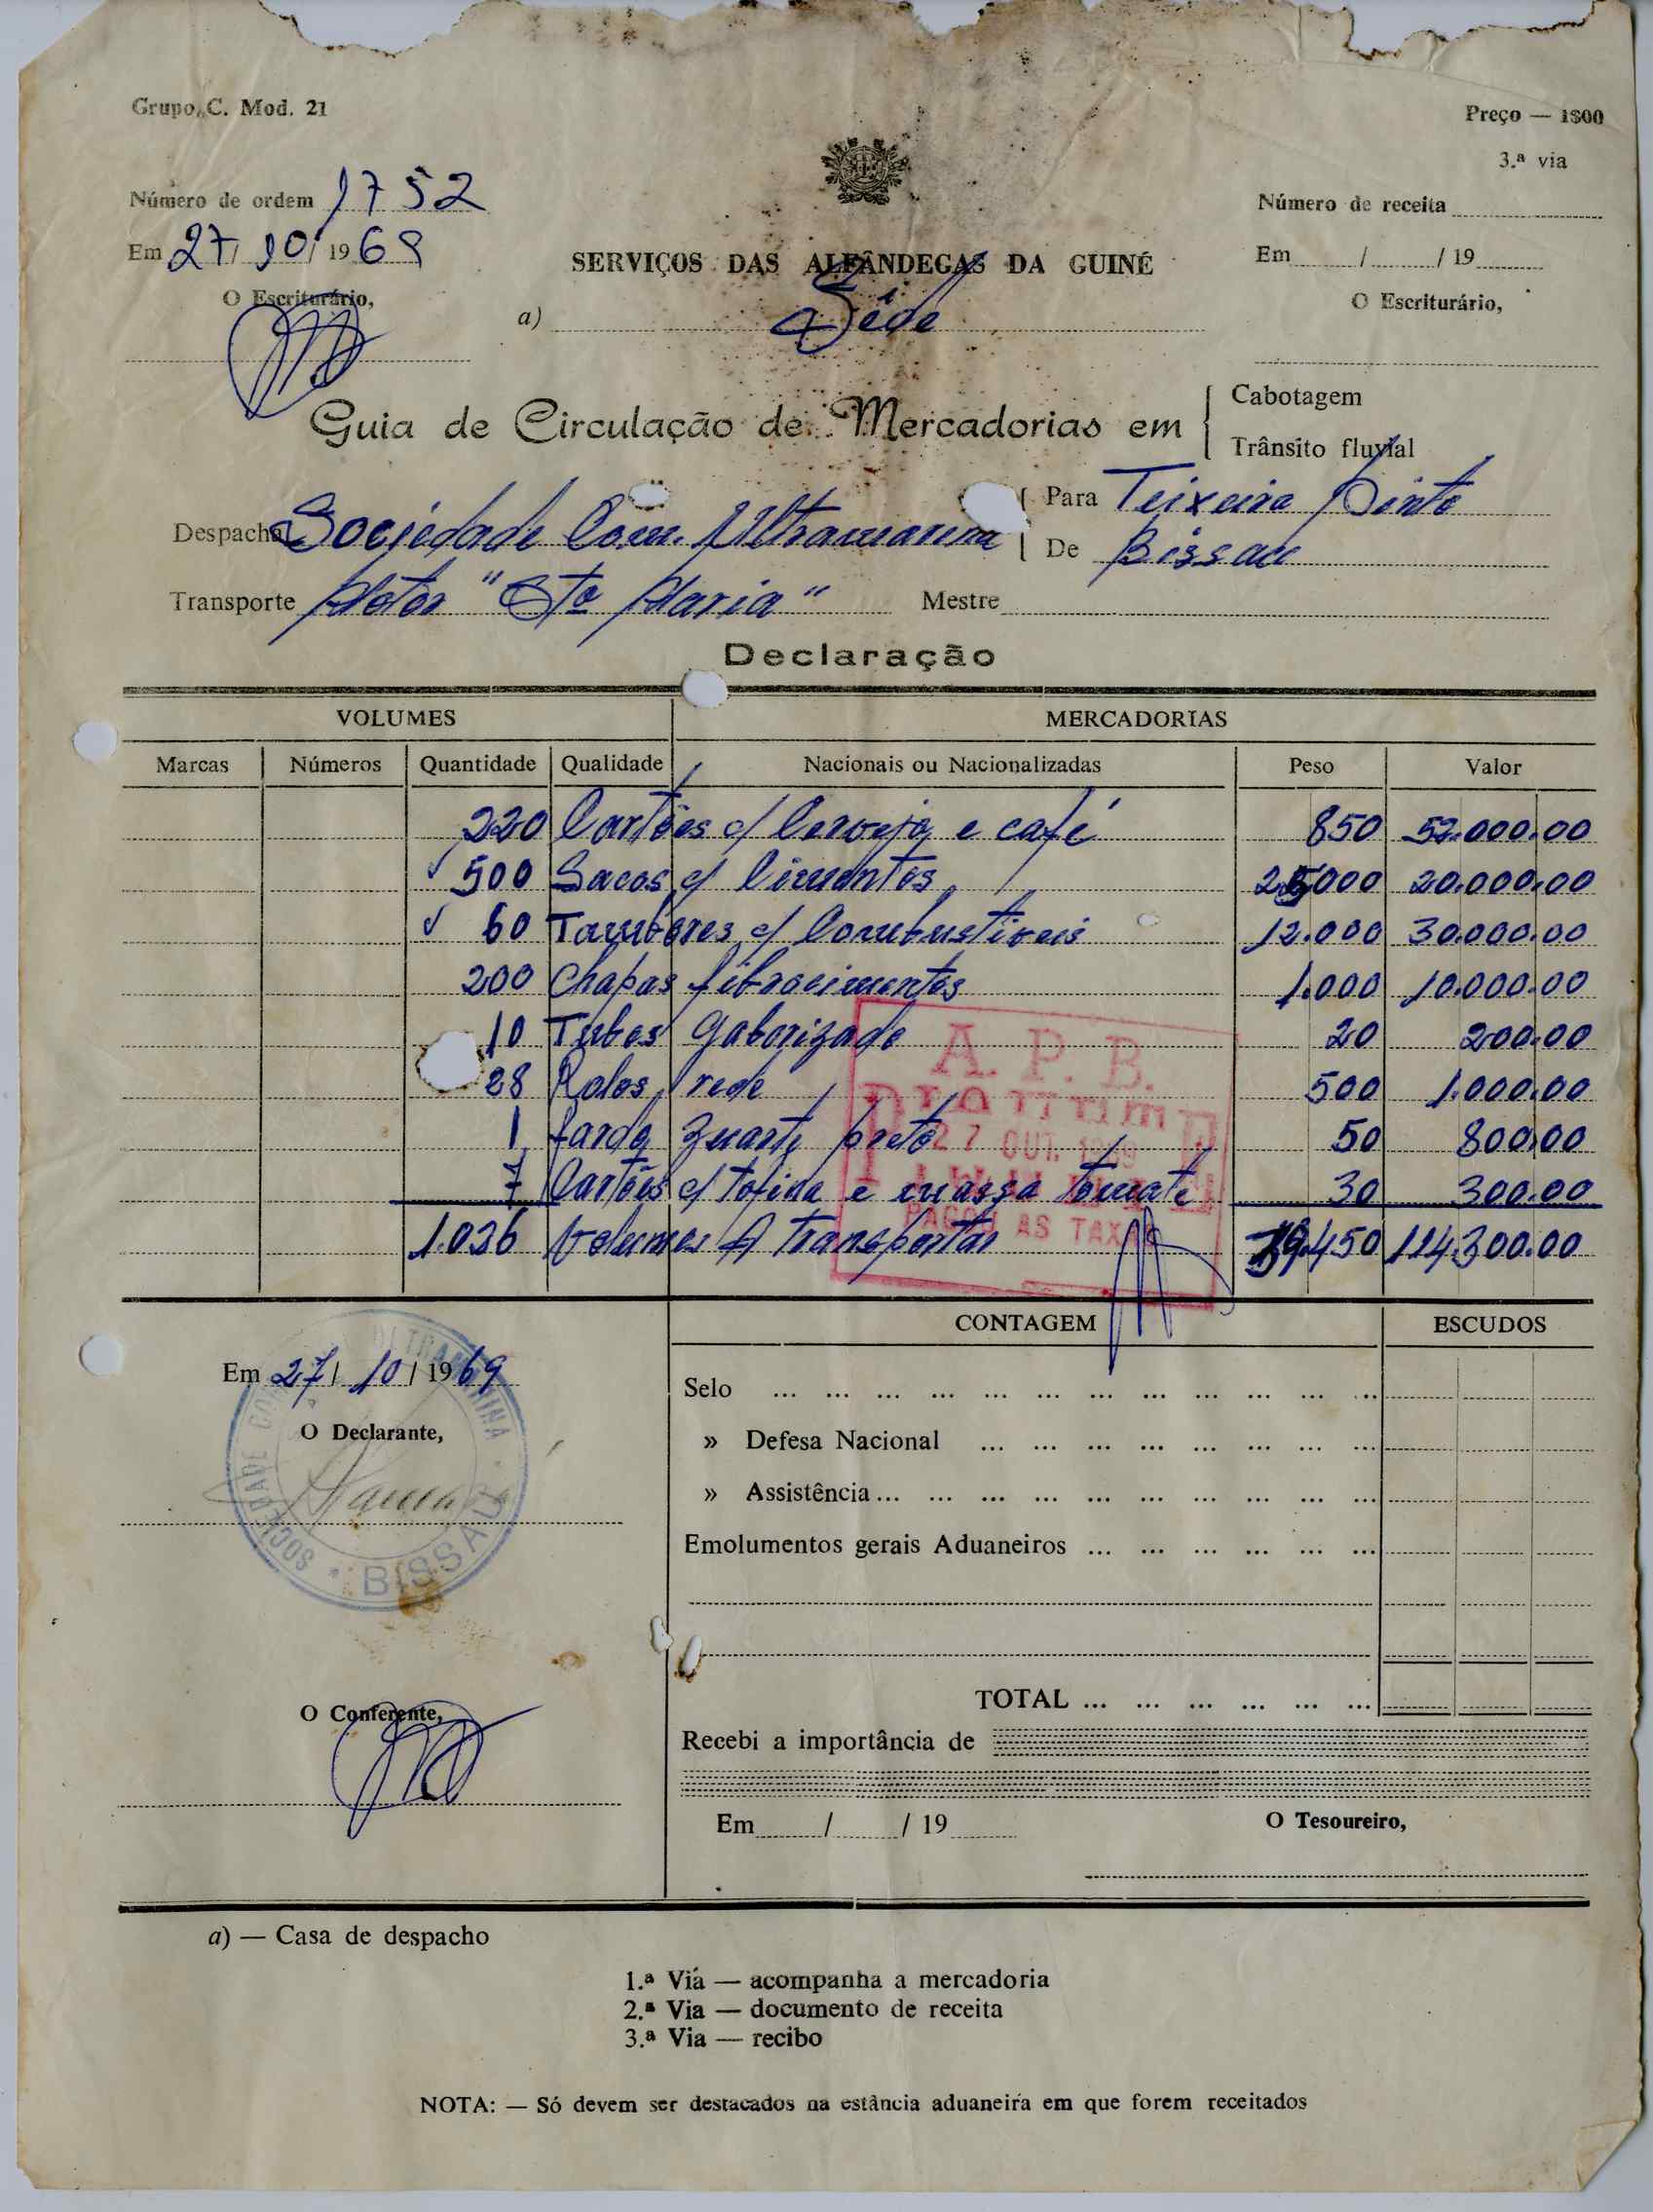 Grupo C. Mod. 21
Preço — 1$00
3.ª via
Número de ordem 1752
Número de receita
Em 27/10/1969
Em / / 19
SERVIÇOS DAS ALFÂNDEGAS DA GUINÉ
O Escriturário,
O Escriturário,
a) Séde
Guia de Circulação de Mercadorias em
Cabotagem
Trânsito fluvial
Despacha Sociedade Com. Ultramarina
Para Teixeira Pinto
De Bissau
Transporte Motor "Sta Maria" Mestre
Declaração
VOLUMES MERCADORIAS
Marcas Números Quantidade Qualidade Nacionais ou Nacionalizadas Peso Valor
220 Cartões c/ Cerveja e café 850 52.000.00
500 Sacos c/ Cimentos 25000 20.000.00
60 Tambores c/ Combustiveis 12.000 30.000.00
200 Chapas fibrocimentos 1.000 10.000.00
10 Tubos Gaborizado 20 200.00
28 Rolos rede 500 1.000.00
1 fardo zuarte preto 50 800.00
7 Cartões c/ tofina e massa tomate 30 300.00
1.026 Volumes A transportar 39.450 114.300.00
A. P. B.
27 OUT. 1969
PAGOU AS TAXAS
CONTAGEM ESCUDOS
Em 27/10/1969
Selo ... ... ... ... ... ... ... ... ... ... ... ...
O Declarante,
» Defesa Nacional ... ... ... ... ... ... ... ...
» Assistência ... ... ... ... ... ... ... ... ... ...
SOCIEDADE COMERCIAL ULTRAMARINA
BISSAU
Emolumentos gerais Aduaneiros ... ... ... ... ... ...
TOTAL ... ... ... ... ... ...
O Conferente,
Recebi a importância de
Em / / 19
O Tesoureiro,
a) — Casa de despacho
1.ª Via — acompanha a mercadoria
2.ª Via — documento de receita
3.ª Via — recibo
NOTA: — Só devem ser destacados na estância aduaneira em que forem receitados